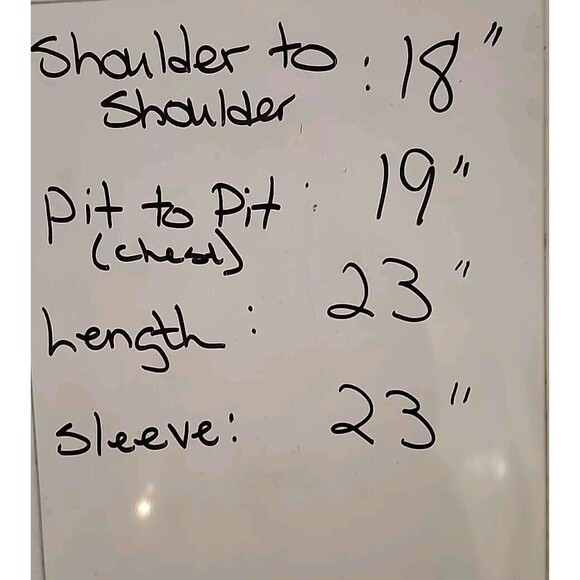 Shoulder to : 18"
Shoulder
Pit to Pit : 19"
(chest)
Length : 23"
Sleeve: 23"